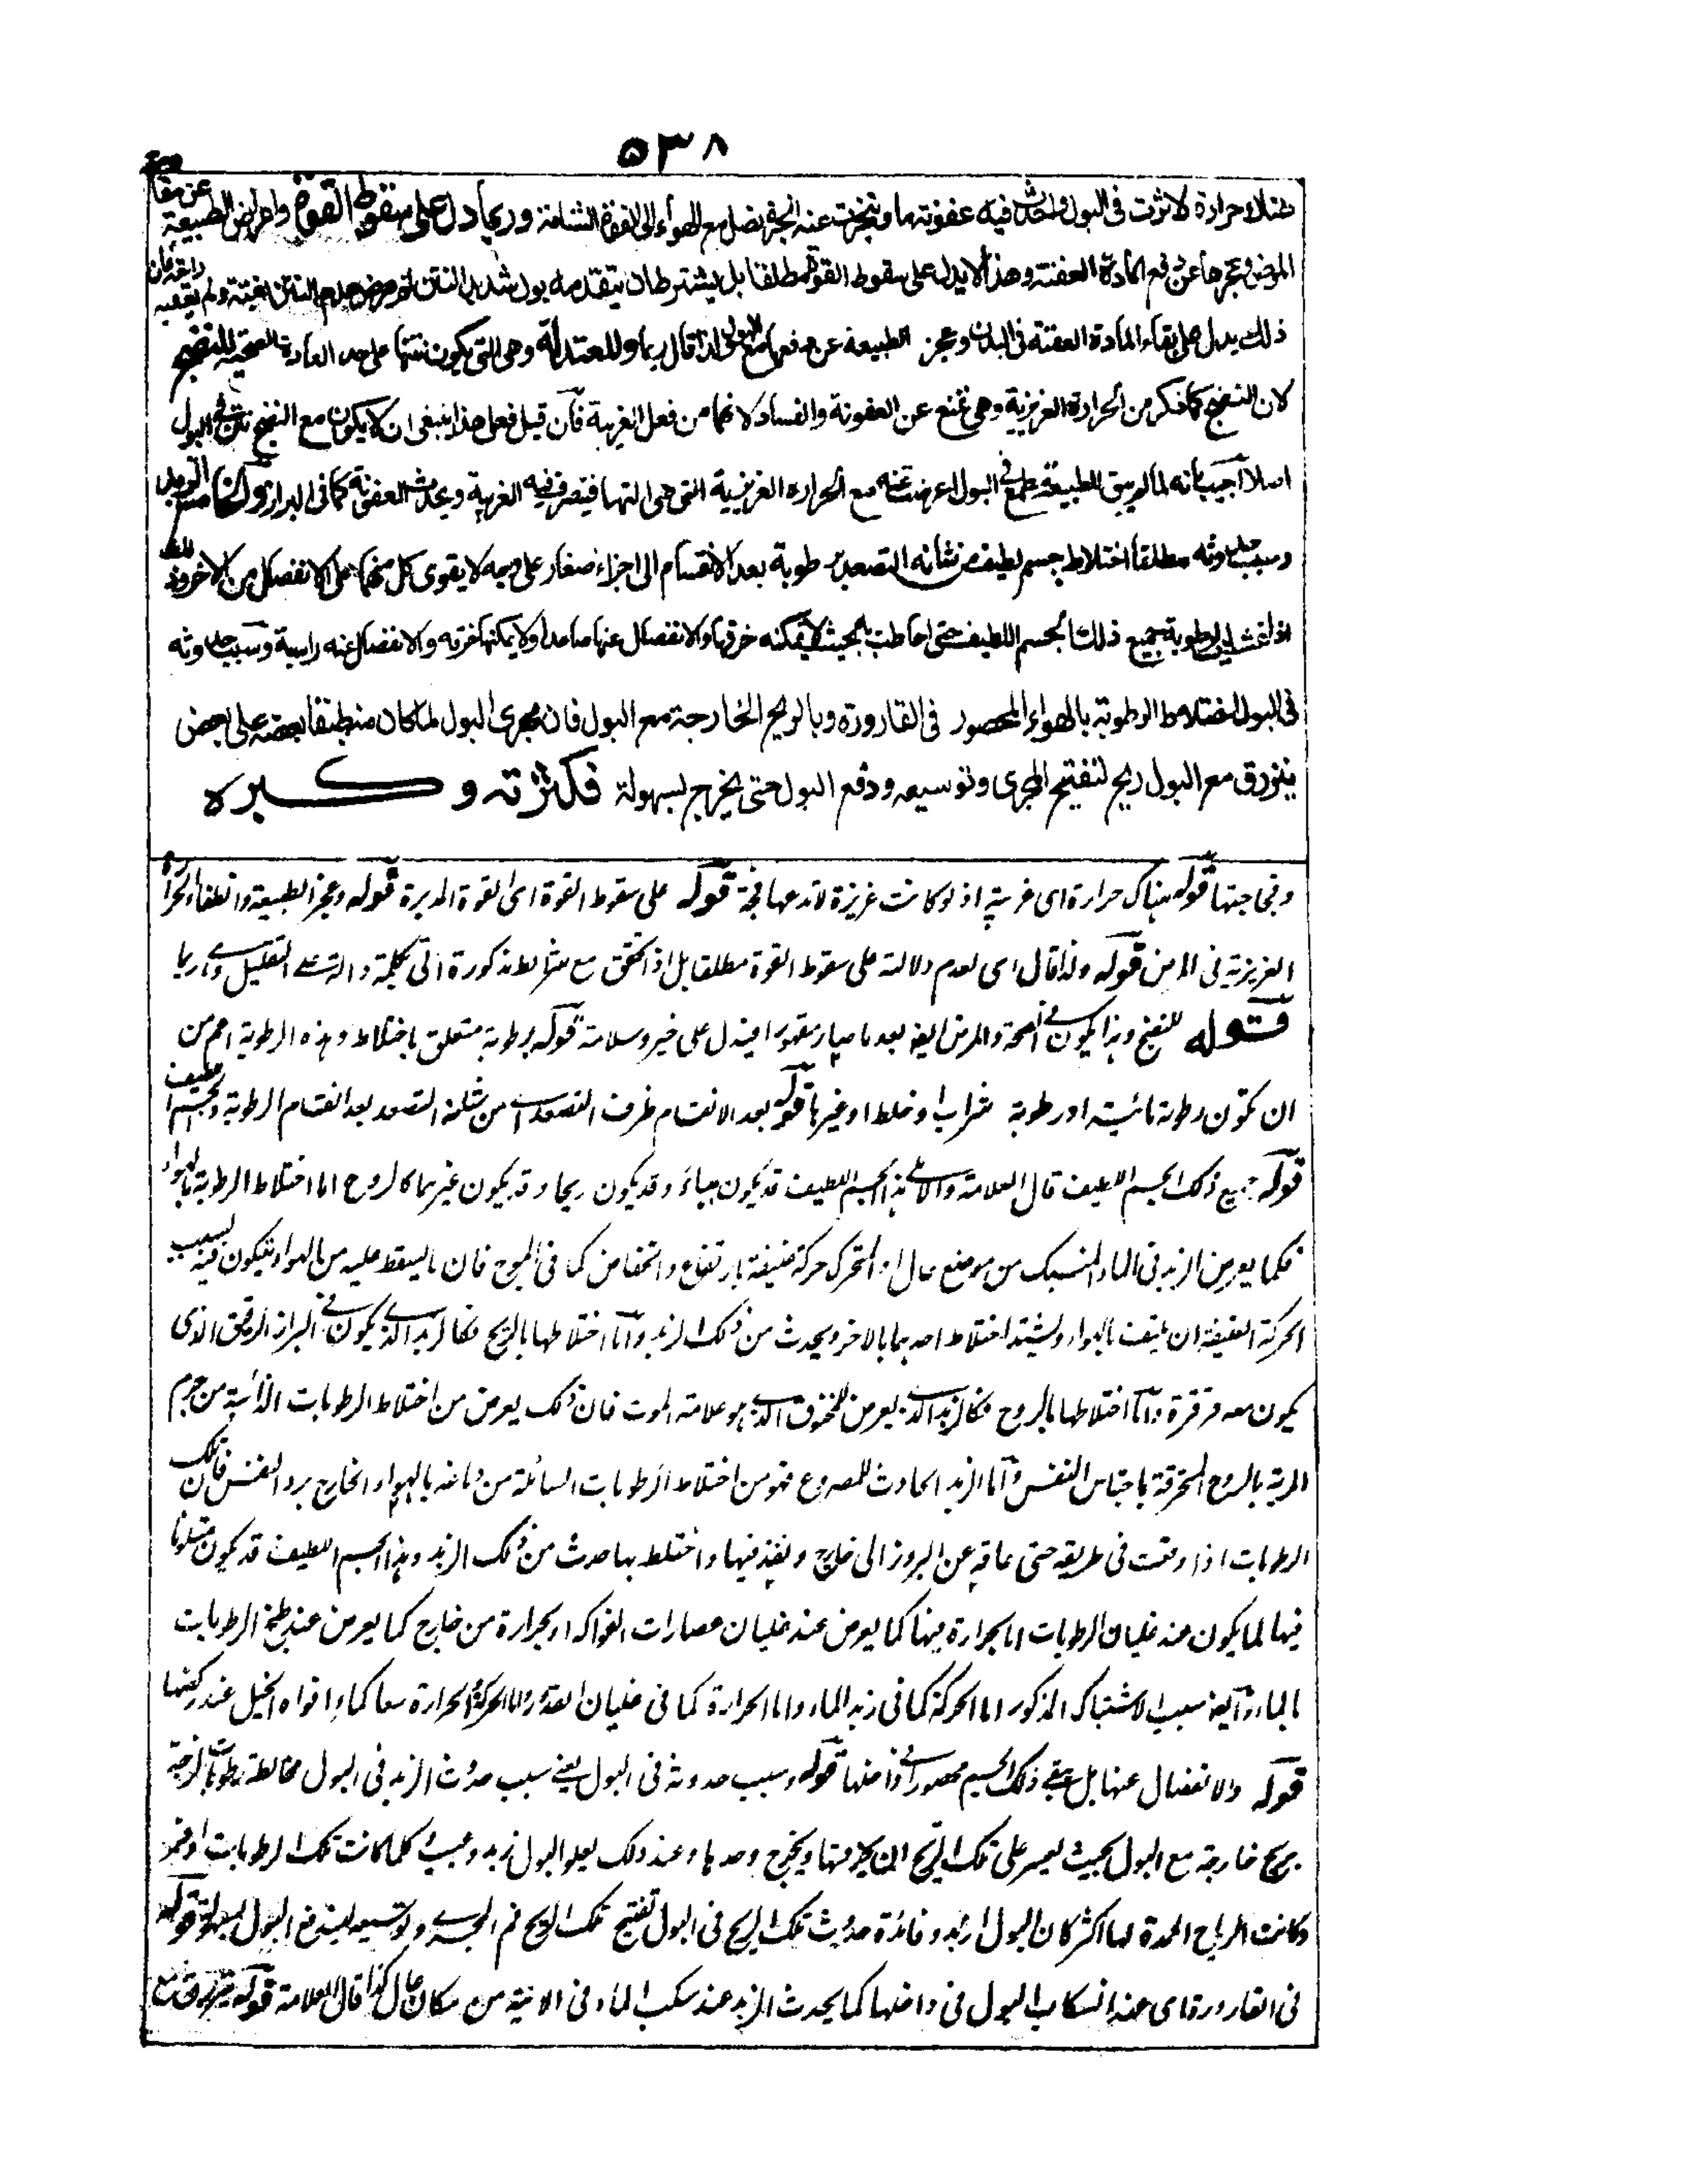 ٥٣٨
هناك حرارة لاثرت فى البول واحدثت فيه عفونة ما وتبخرت عنه ابخرة تصل مع الهواء الى القوة الشامة وربما دل على سقوط القوة واعراض الطبيعة عن مقا
المرض وعجزها عن دفع المادة العفنة وهذا لا يدل على سقوط القوة مطلقا بل يشترط ان يتقدمه بول شديد النتن ثم يعرض عدم النتن بغتة ولم يعقبه راحة فان
ذلك يدل على بقاء المادة العفنة فى البدن وعجز الطبيعة عن دفعها مع البول ولذا قال ربما والمعتدلة وهى التى يكون نتنها على حد العادة الصحية للنضج
لان النضج كما ذكر من الحرارة الغريزية وهى تمنع عن العفونة والفساد لانهما من فعل الغريبة فان قيل فعلى هذا ينبغى ان لا يكون مع النضج نتن فى البول
اصلا اجيب بانه لما لم يبق للطبيعة طمع فى البول اعرضت عنه مع الحرارة الغريزية التى هى التها فيتصرف فيه الغريبة ويحدث العفونة كما فى البراز
وسبب حدوثه مطلقا اختلاط جسم لطيف من شانه التصعد برطوبة بعد الانقسام الى اجزاء صغار على وجه لا يقوى كل منهما على الانفصال من الاخر وذلك
اذا تغشى الرطوبة جميع ذلك الجسم اللطيف حتى احاطت به بحيث لا يمكنه خرقها والانفصال عنها صاعدا ولا يمكنها خرقه والانفصال عنه راسبة وسبب حدوثه
فى البول اختلاط الرطوبة بالهواء المحصور فى القارورة وبالريح الخارجة مع البول فان مجرى البول لما كان منطبقا بعضه على بعض
ينزرق مع البول ريح لتفتيح المجرى وتوسيعه ودفع البول حتى يخرج بسهولة فكثرته وكبره
وفجاجتها قوله هناك حرارة اى غريبة اذ لو كانت غريزة لاتدعها فجة قوله على سقوط القوة اى القوة المدبرة قوله وعجز الطبيعة وانطفاء الحرارة
الغريزية فى المرض قوله ولذا قال اى لعدم دلالته على سقوط القوة مطلقا بل اذا تحقق مع شرائط مذكورة اتى بكلمة دالة على التقليل وهى ربما
قوله للنضج وهذا يكون فى الصحة والمرض ايضا بعد ما صار مقهورا فيدل على خير وسلامة قوله برطوبة متعلق باختلاط وهذه الرطوبة اعم من
ان تكون رطوبة مائية او رطوبة شراب او خلط او غيرها قوله بعد الانقسام ظرف التصعد اى من شانه التصعد بعد انقسام الرطوبة والجسم اللطيف
قوله جميع ذلك الجسم اللطيف قال العلامة والاملى هذا الجسم اللطيف قد يكون هباء وقد يكون ريحا وقد يكون غيرهما كالروح اما اختلاط الرطوبة بالهواء
فكما يعرض الزبد فى الماء المنسكب من موضع عال او المتحرك حركة عنيفة بارتفاع وانخفاض كما فى الموج فان ما يسقط عليه من الهواء يتكون فيه بسبب
الحركة العنيفة ان يلتف بالهواء ويشتد اختلاط احدهما بالاخر ويحدث من ذلك الزبد واما اختلاطها بالريح فكالزبد الذى يكون فى البراز الرقيق الذى
يكون معه قرقرة واما اختلاطها بالروح فكالزبد الذى يعرض للمخنوق الذى هو علامة الموت فان ذلك يعرض من اختلاط الرطوبات الذائبة من جرم
الرية بالروح المحترقة باحتباس النفس واما الزبد الحادث للمصروع فهو من اختلاط الرطوبات السائلة من دماغه بالهواء الخارج برد النفس فان تلك
الرطوبات اذا وقعت فى طريقه حتى عاقه عن البروز الى خارج ونفذ فيها واختلط بها حدث من ذلك الزبد وهذا الجسم اللطيف قد يكون متكونا
فيها لما يكون عند غليان الرطوبات اما بحرارة فيها كما يعرض عند غليان عصارات الفواكه او بحرارة من خارج كما يعرض عند طبخ الرطوبات
بالماء وايضا سبب الاشتباك المذكور اما الحركة كما فى زبد الماء واما الحرارة كما فى غليان القدر واما الحركة والحرارة معا كماء افواه الخيل عند ركضها
قوله والانفصال عنها بل يبقى ذلك الجسم محصورا فى داخلها قوله وسبب حدوثه فى البول يعنى سبب حدوث الزبد فى البول مخالطة رطوبات لزجة
بريح خارجة مع البول بحيث يعسر على تلك الريح ان يخرقها ويخرج وحدها وعند ذلك يعلو البول زبد وعبب كلما كانت تلك الرطوبات اوفر
وكانت الرياح الممدة لها اكثر كان البول ازبد وفائدة حدوث تلك الريح فى البول تفتيح تلك الريح فم المجرى وتوسيعه ليندفع البول بسهولة قوله
فى القارورة اى عند انسكاب البول فى داخلها كما يحدث الزبد عند سكب الماء فى الانية من مكان عال كذا قال العلامة قوله ينزرق مع